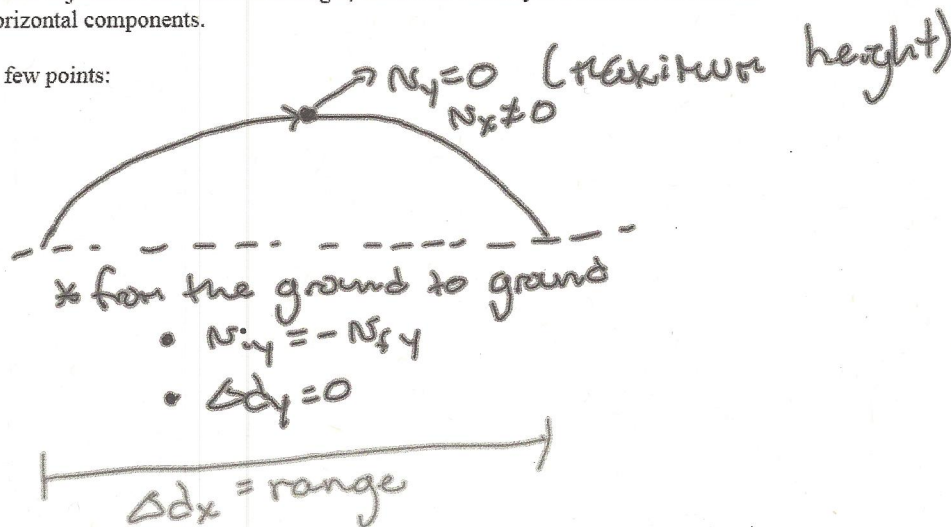 orizontal components.
few points:
Vy=0 (maximum height)
Vx≠0
* from the ground to ground
• Viy = - Vfy
• Δdy=0
Δdx = range